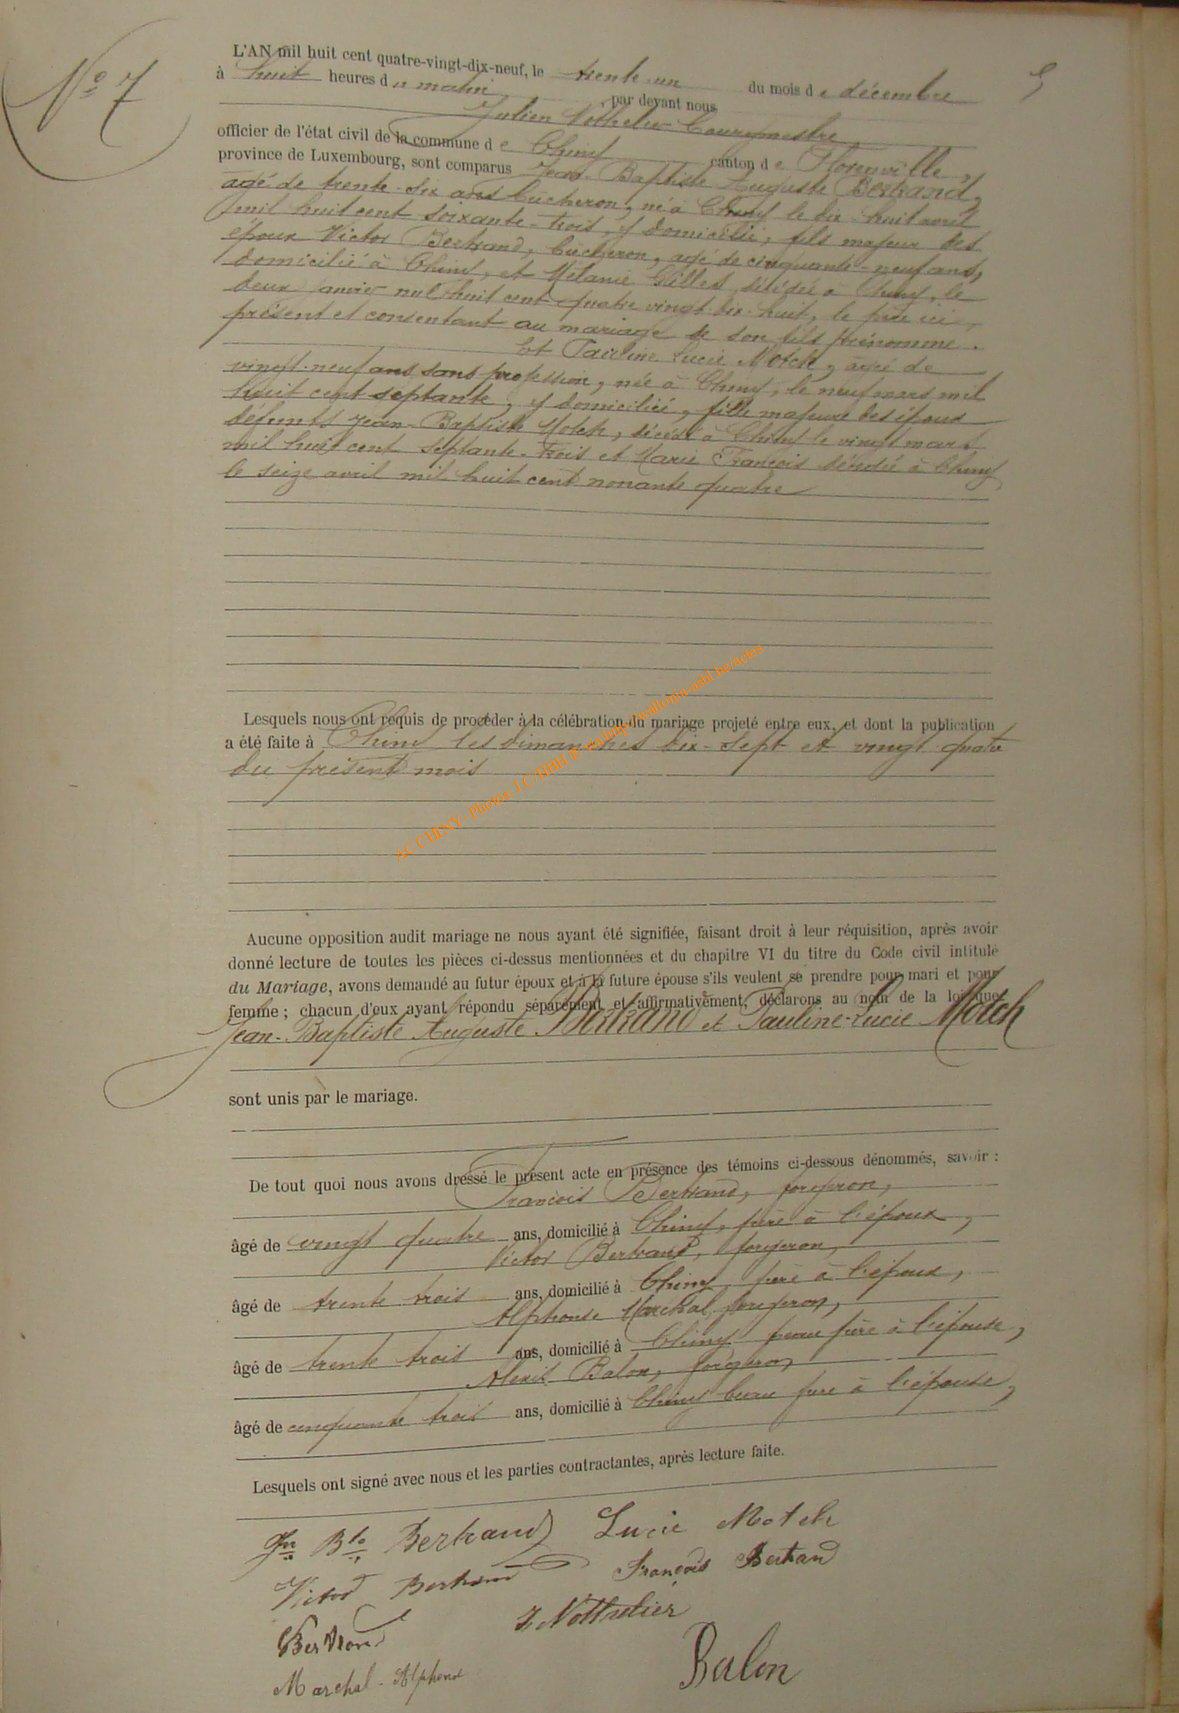 N° 7
L'AN mil huit cent quatre-vingt-dix-neuf, le trente-un du mois de décembre
à huit heures du matin par devant nous
Julien Bourgmestre
officier de l'état civil de la commune de Chiny canton de Florenville,
province de Luxembourg, sont comparus Jean-Baptiste Auguste Bertrand,
agé de trente-six ans bûcheron, né à Chiny le dix-huit avril
mil huit cent soixante-trois, y domicilié, fils majeur des
époux Victor Bertrand, bûcheron, agé de cinquante-neuf ans,
domicilié à Chiny, et Mélanie Gilles, décédée à Chiny, le
deux janvier mil huit cent quatre vingt dix-huit, le père ici
présent et consentant au mariage de son fils prénommé.
Et Pauline Lucie Motch, agée de
vingt-neuf ans sans profession, née à Chiny, le neuf mars mil
huit cent septante, y domiciliée, fille majeure des époux
défunts Jean-Baptiste Motch, décédé à Chiny le vingt mars
mil huit cent septante-trois et Marie François décédée à Chiny
le seize avril mil huit cent nonante quatre
Lesquels nous ont requis de procéder à la célébration du mariage projeté entre eux, et dont la publication
a été faite à Chiny les dimanches dix-sept et vingt quatre
du présent mois
Aucune opposition audit mariage ne nous ayant été signifiée, faisant droit à leur réquisition, après avoir
donné lecture de toutes les pièces ci-dessus mentionnées et du chapitre VI du titre du Code civil intitulé
du Mariage, avons demandé au futur époux et à la future épouse s'ils veulent se prendre pour mari et pour
femme ; chacun d'eux ayant répondu séparément et affirmativement, déclarons au nom de la loi que
Jean-Baptiste Auguste Bertrand et Pauline-Lucie Motch
sont unis par le mariage.
De tout quoi nous avons dressé le présent acte en présence des témoins ci-dessous dénommés, savoir :
François Bertrand, forgeron,
âgé de vingt quatre ans, domicilié à Chiny, frère à l'époux,
Victor Bertrand, forgeron,
âgé de trente trois ans, domicilié à Chiny, frère à l'époux,
Alphonse Marchal, forgeron,
âgé de trente trois ans, domicilié à Chiny beau frère à l'épouse,
Alexis Balon, forgeron,
âgé de cinquante trois ans, domicilié à Chiny beau frère à l'épouse,
Lesquels ont signé avec nous et les parties contractantes, après lecture faite.
Jn Bte Bertrand Lucie Motch
Victor Bertrand François Bertrand
Bertrand
Marchal - Alphonse Balon